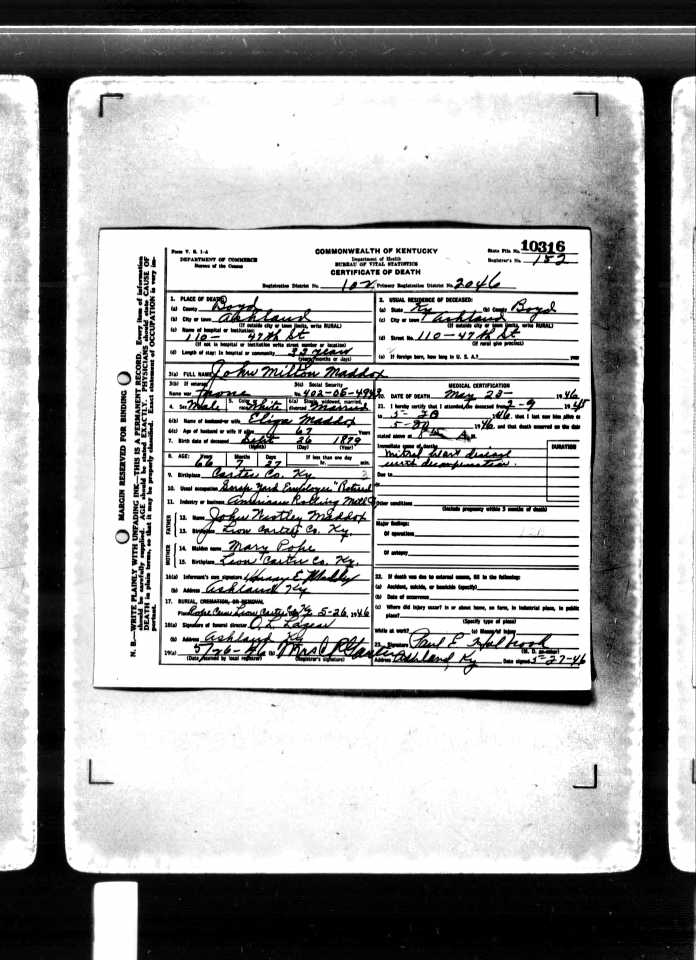 Form V. S. 1-A
DEPARTMENT OF COMMERCE
Bureau of the Census
COMMONWEALTH OF KENTUCKY
Department of Health
BUREAU OF VITAL STATISTICS
CERTIFICATE OF DEATH
State File No. 10316
Registrar's No. 152
Registration District No. 102 Primary Registration District No. 2046
MARGIN RESERVED FOR BINDING
N. B.—WRITE PLAINLY WITH UNFADING INK—THIS IS A PERMANENT RECORD. Every item of information
should be carefully supplied. AGE should be stated EXACTLY. PHYSICIANS should state CAUSE OF
DEATH in plain terms, so that it may be properly classified. Exact statement of OCCUPATION is very im-
portant.
1. PLACE OF DEATH
(a) County Boyd
(b) City or town Ashland
(If outside city or town limits, write RURAL)
(c) Name of hospital or institution:
110- 47th St
(If not in hospital or institution write street number or location)
(d) Length of stay: In hospital or community 33 years
(years, months or days)
2. USUAL RESIDENCE OF DECEASED:
(a) State Ky (b) County Boyd
(c) City or town Ashland
(If outside city or town limits, write RURAL)
(d) Street No. 110-47th St
(If rural give precinct)
(e) If foreign born, how long in U. S. A.? years
3(a) FULL NAME John Milton Maddox
3(b) If veteran
Name war None
3(c) Social Security
No.
4. Sex Male 5. Color or race White 6(a) Single, widowed, married, divorced Married
6(b) Name of husband or wife Eliza Maddox
6(c) Age of husband or wife if alive 67 Years
7. Birth date of deceased Sept 26 1879
(Month) (Day) (Year)
8. AGE: Years Months Days If less than one day
66 27 hr. min.
9. Birthplace Carter Co. Ky
10. Usual occupation Scrap Yard Employee "Retired"
11. Industry or business American Rolling Mill
FATHER
12. Name John Maddox
13. Birthplace Lion Carter Co. Ky.
MOTHER
14. Maiden name Mary Pope
15. Birthplace Leon Carter Co. Ky.
16(a) Informant's own signature
(b) Address Ashland Ky
17. BURIAL, CREMATION, OR REMOVAL
Place Pope Cem. Lion, Carter Co Ky 5-26, 1946
18(a) Signature of funeral director
(b) Address Ashland Ky
19(a) 5/26-46 (b) Mrs
(Date received by local registrar) (Registrar's signature)
MEDICAL CERTIFICATION
20. DATE OF DEATH May 23- 1946
21. I hereby certify that I attended the deceased from 2-9 1945
to 1946, that I last saw him alive on
1946, and that death occurred on the date
stated above at M.
Immediate cause of death
mitral heart disease
with decompensation.
DURATION
Due to
Other conditions
(Include pregnancy within 3 months of death)
Major findings:
Of operations
Of autopsy
22. If death was due to external causes, fill in the following:
(a) Accident, suicide, or homicide (specify)
(b) Date of occurrence
(c) Where did injury occur? In or about home, on farm, in industrial place, in public
place?
(Specify type of place)
While at work? (e) Means of injury
23. Signature Paul E Holbrook
(M. D. or other)
Address Ashland, Ky Date signed 5-27-46